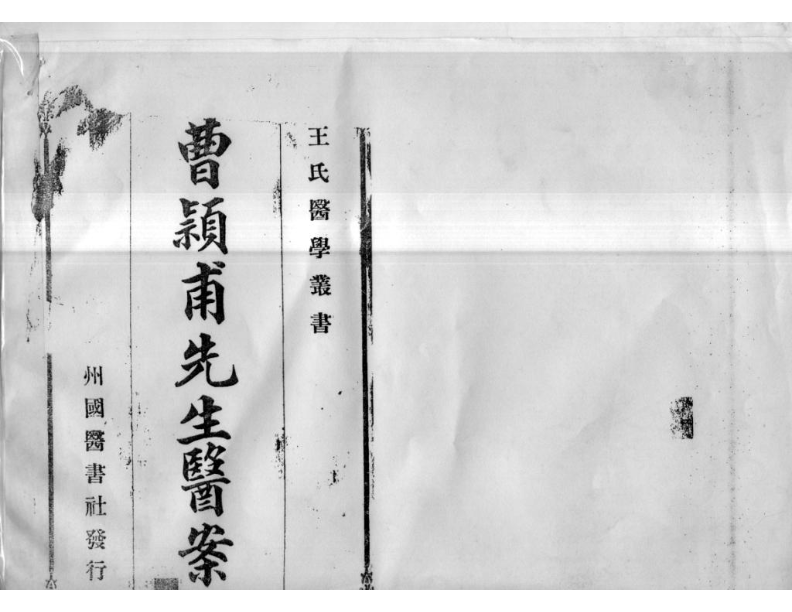 王氏醫學叢書
曹頴甫先生醫案
州國醫書社發行